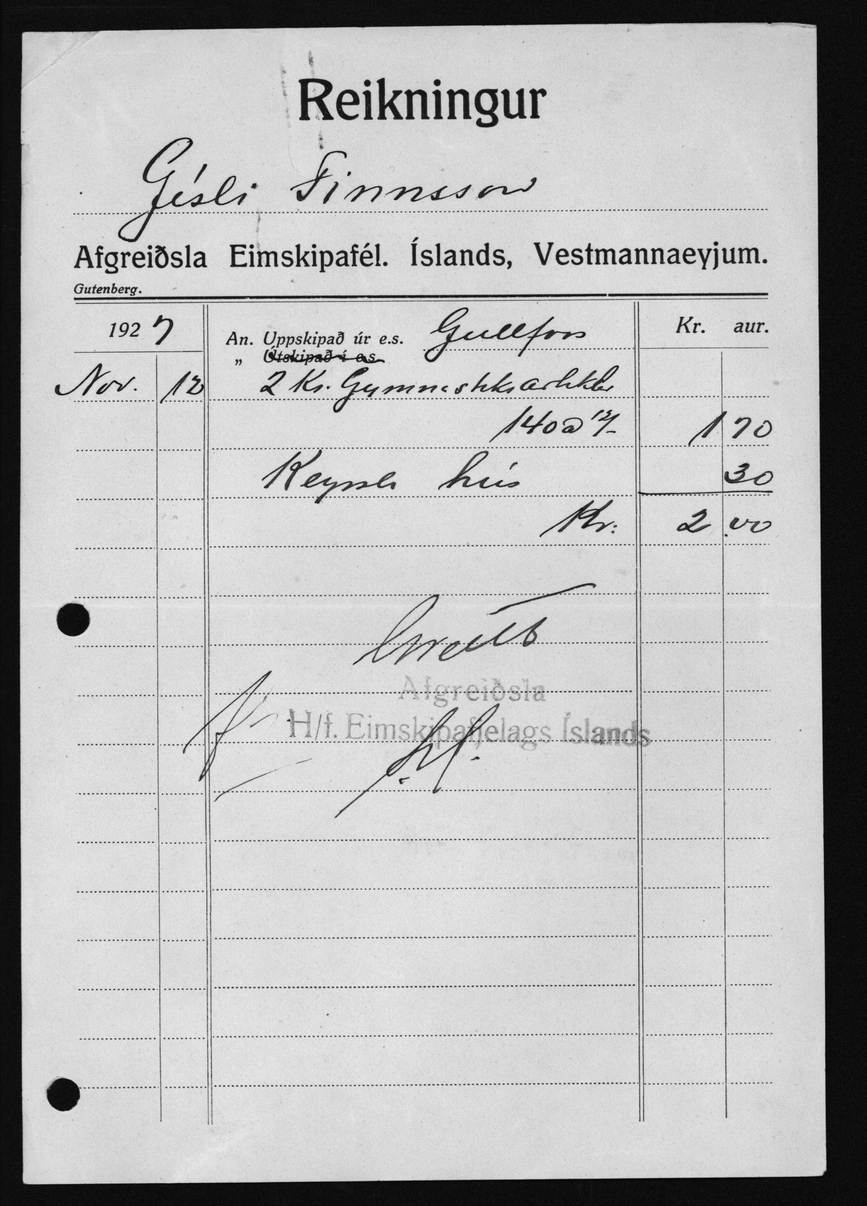 Reikningur
Gísli Finnsson
Afgreiðsla Eimskipafél. Íslands, Vestmannaeyjum.
Gutenberg.
1927 An. Uppskipað úr e.s. Gullfoss Kr. aur.
„ Útskipað í e.s.
Nov. 12 2 Ks. Gymnastikartikler
140 a 12/- 1 70
Keyrsla hús 30
Kr: 2 00
Greitt
Afgreiðsla
H/f. Eimskipafjelags Íslands